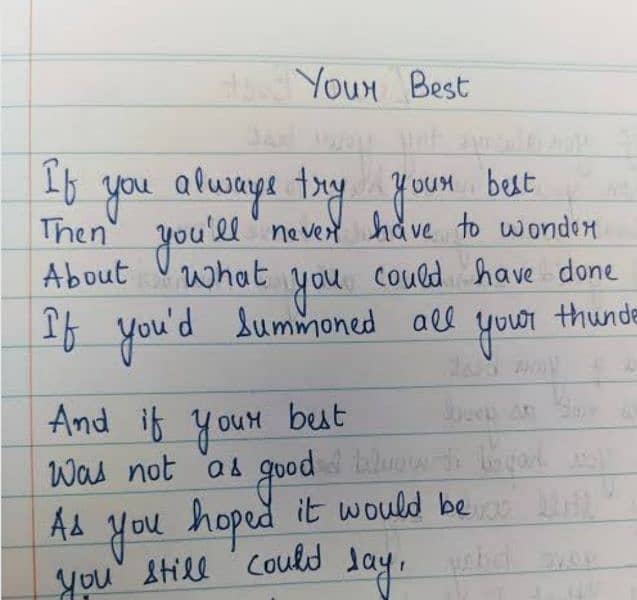 Your Best
If you always try your best
Then you'll never have to wonder
About what you could have done
If you'd summoned all your thunde
And if your best
Was not as good
As you hoped it would be
You still could say,